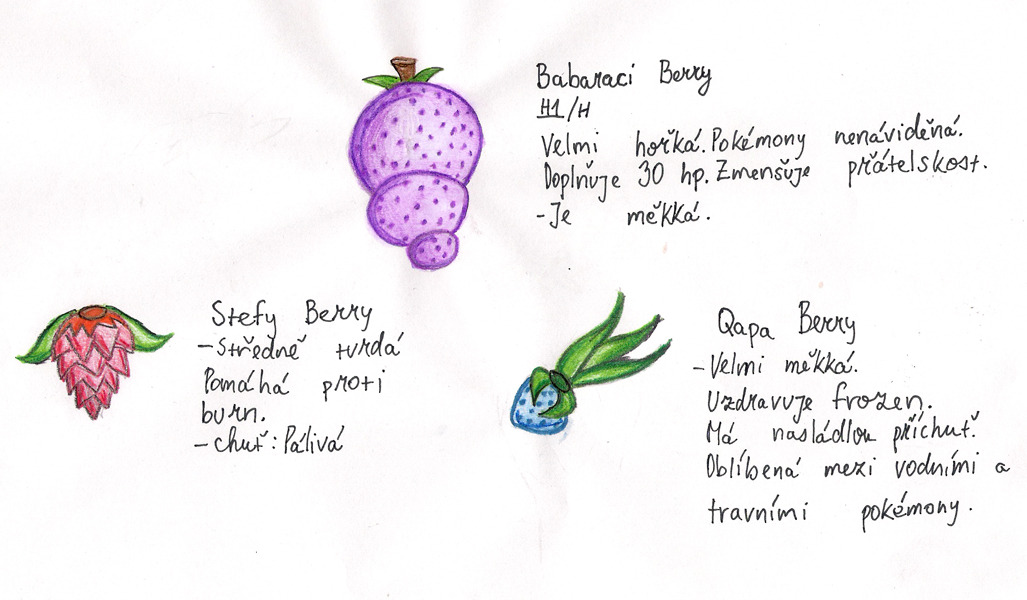 Babaraci Berry
H1/H
Velmi hořká. Pokémony nenáviděná.
Doplňuje 30 hp. Zmenšuje přátelskost.
-Je měkká.
Stefy Berry
-Středně tvrdá
Pomáhá proti
burn.
-chuť: Pálivá
Qapa Berry
-Velmi měkká.
Uzdravuje frozen.
Má nasládlou příchuť.
Oblíbená mezi vodními a
travními pokémony.